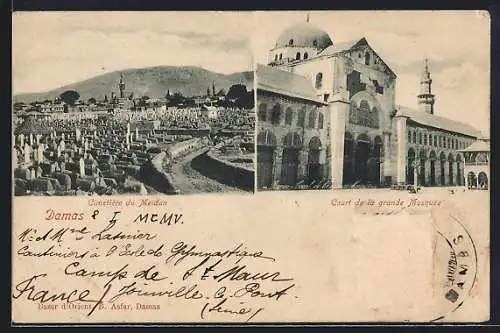 Cimetière du Meidan
Court de la grande Mosquée
Damas 8 I MCMV.
Mr & Mme Latinier
Cantiniers à l'Ecole Gymnastique
Camp de St Maur
France) Joinville-le-Pont
(Seine)
Bazar d'Orient, B. Asfar, Damas